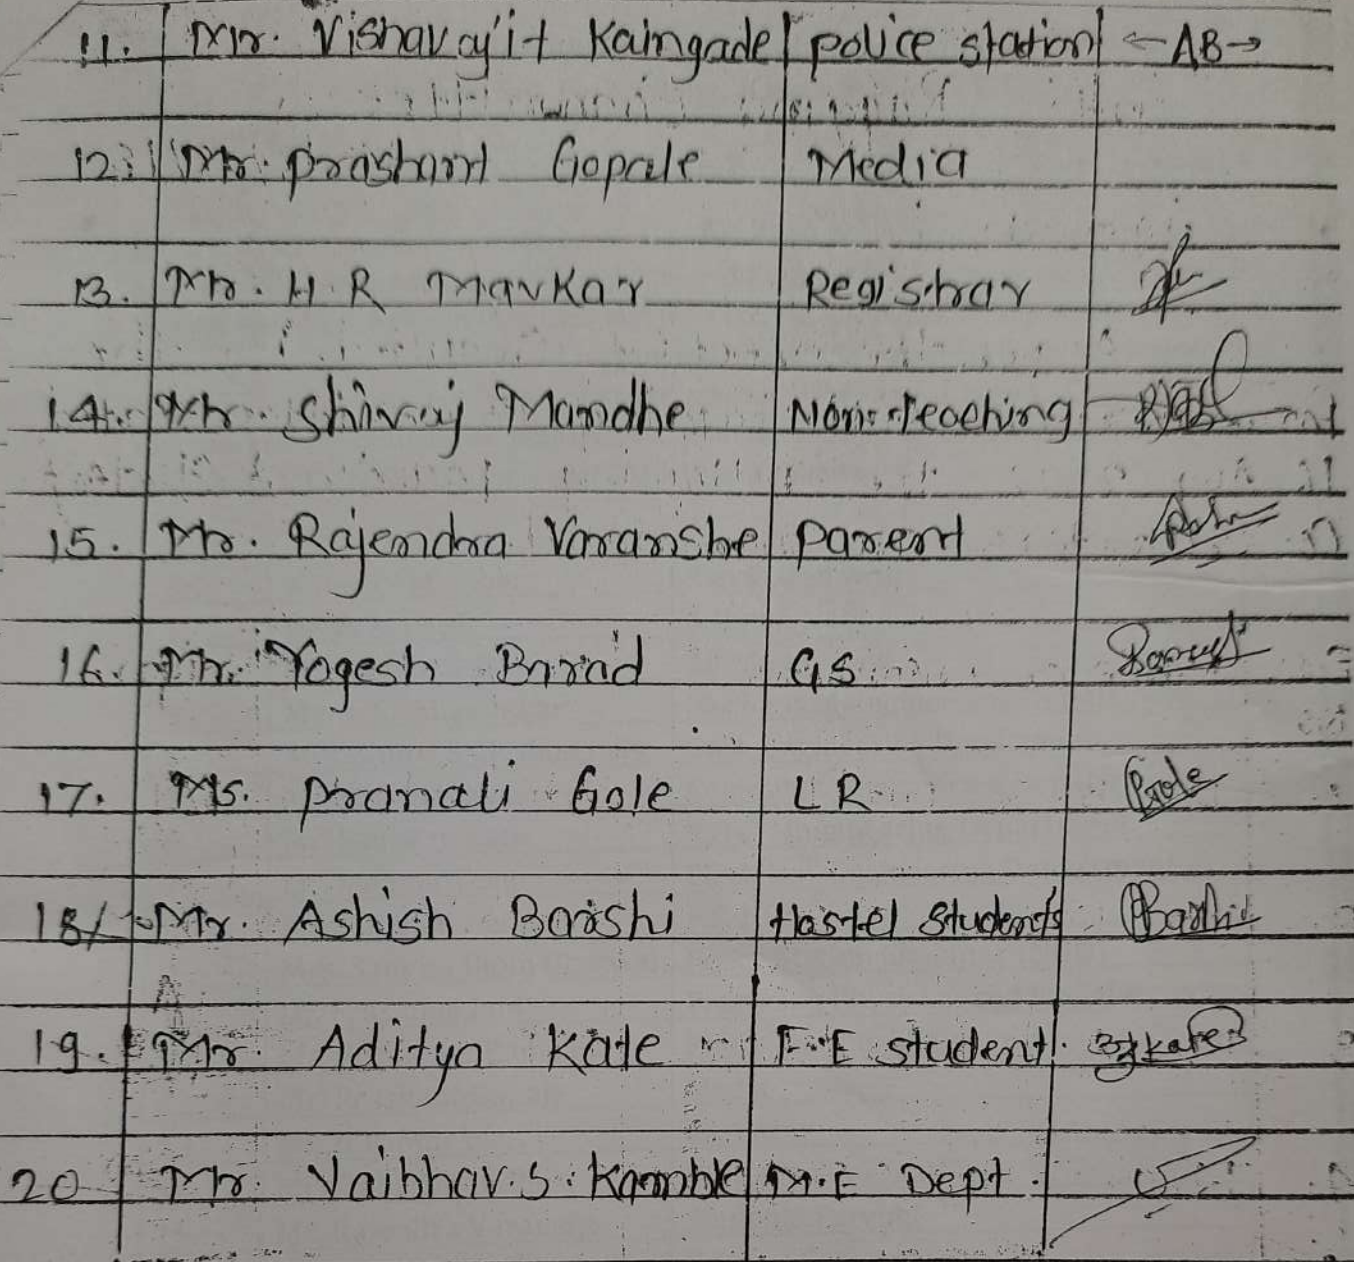 11. Mr. Vishavajit Kaingade police station ←AB→
12. Mr. Prashant Gopale Media
13. Mr. H.R Mavkar Registrar
14. Mr. Shivraj Mandhe Non-Teaching
15. Mr. Rajendra Varanshe parent
16. Mr. Yogesh Barad GS
17. Ms. Pranali Gole LR Gole
18/ Mr. Ashish Barshi Hostel students Barshi
19. Mr. Aditya Kale F.E student
20 Mr. Vaibhav.S.Kamble M.E Dept.